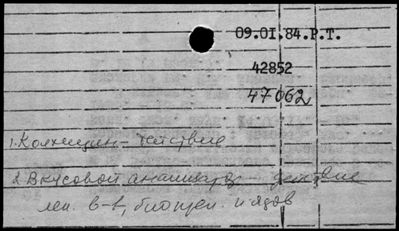 09.01.84.Р.Т.
42852
47062
1. Колхицин - действие
2. Вкусовой анализатор - действие
лек. в-в, биопреп. и ядов